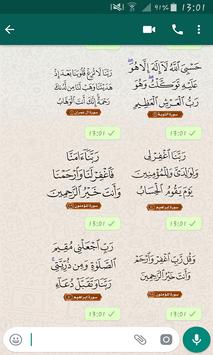 91% 13:01
حَسْبِيَ ٱللَّهُ لَآ إِلَٰهَ إِلَّا هُوَ
عَلَيْهِ تَوَكَّلْتُ وَهُوَ
رَبُّ ٱلْعَرْشِ ٱلْعَظِيمِ
سورة التوبة
رَبَّنَا لَا تُزِغْ قُلُوبَنَا بَعْدَ إِذْ
هَدَيْتَنَا وَهَبْ لَنَا مِن لَّدُنكَ
رَحْمَةً إِنَّكَ أَنتَ ٱلْوَهَّابُ
سورة آل عمران
13:01
13:01
رَبَّنَا ٱغْفِرْ لِى
وَلِوَٰلِدَىَّ وَلِلْمُؤْمِنِينَ
يَوْمَ يَقُومُ ٱلْحِسَابُ
سورة إبراهيم
رَبَّنَآ ءَامَنَّا
فَٱغْفِرْ لَنَا وَٱرْحَمْنَا
وَأَنتَ خَيْرُ ٱلرَّٰحِمِينَ
سورة المؤمنون
13:01
13:01
وَقُل رَّبِّ ٱغْفِرْ وَٱرْحَمْ
وَأَنتَ خَيْرُ ٱلرَّٰحِمِينَ
سورة المؤمنون
رَبِّ ٱجْعَلْنِى مُقِيمَ
ٱلصَّلَوٰةِ وَمِن ذُرِّيَّتِى
رَبَّنَا وَتَقَبَّلْ دُعَآءِ
سورة إبراهيم
13:01
13:01